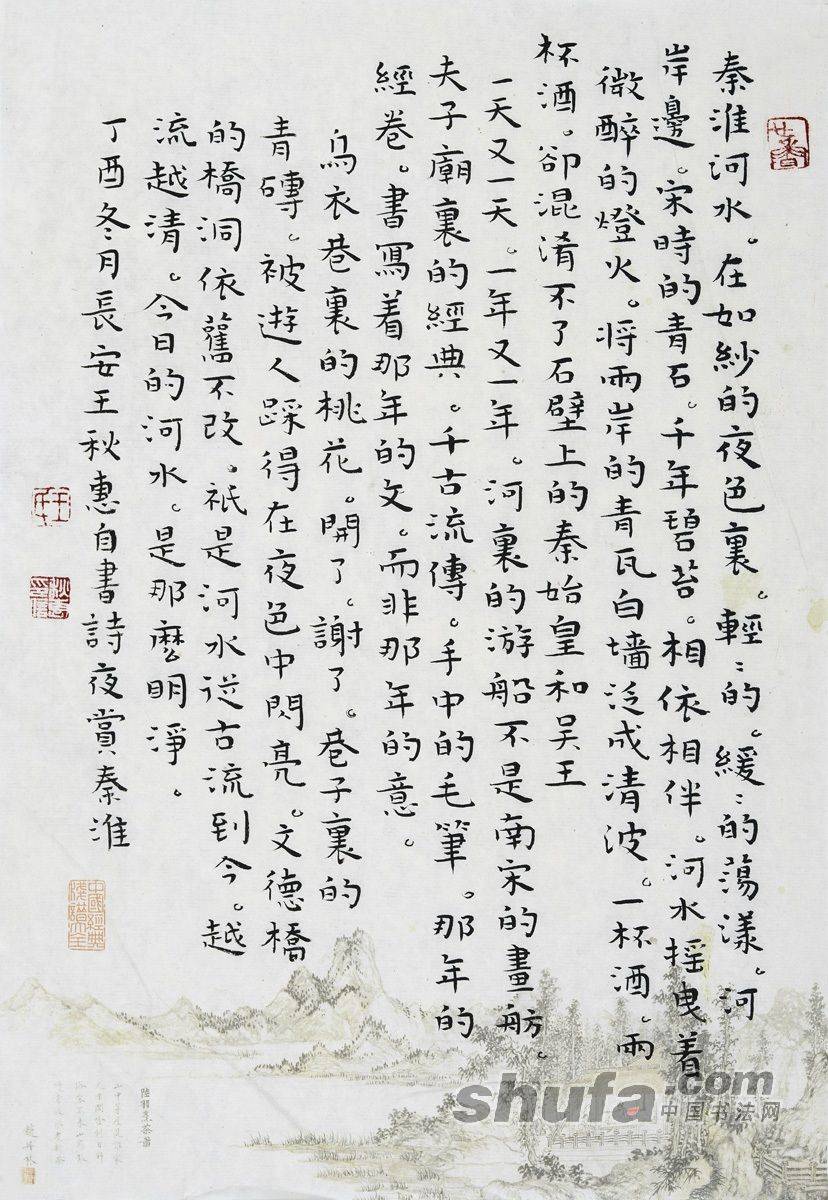 秦淮河水。在如紗的夜色裏。輕ミ的。緩ミ的蕩漾。河
岸邊。宋時的青石。千年碧苔。相依相伴。河水摇曳着
微醉的燈火。将兩岸的青瓦白墻泛成清波。一杯酒。兩
杯酒。卻混淆不了石壁上的秦始皇和吴王
一天又一天。一年又一年。河裏的游船不是南宋的畫舫。
夫子廟裏的經典。千古流傳。手中的毛筆。那年的
經卷。書寫着那年的文。而非那年的意。
烏衣巷裏的桃花。開了。謝了。巷子裏的
青磚。被遊人踩得在夜色中閃亮。文德橋
的橋洞依舊不改。祇是河水從古流到今。越
流越清。今日的河水。是那麽明淨。
丁酉冬月長安王秋惠自書詩夜賞秦淮
shufa.com
中国书法网